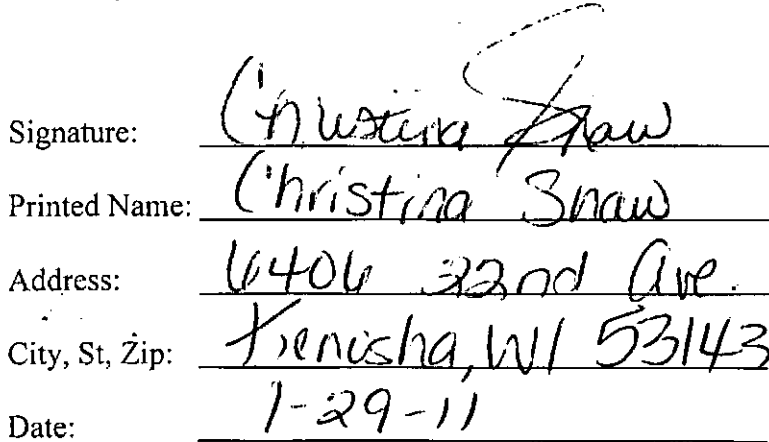 Signature: Christina Shaw
Printed Name: Christina Shaw
Address: 6406 22nd Ave.
City, St, Zip: Kenosha, WI 53143
Date: 1-29-11